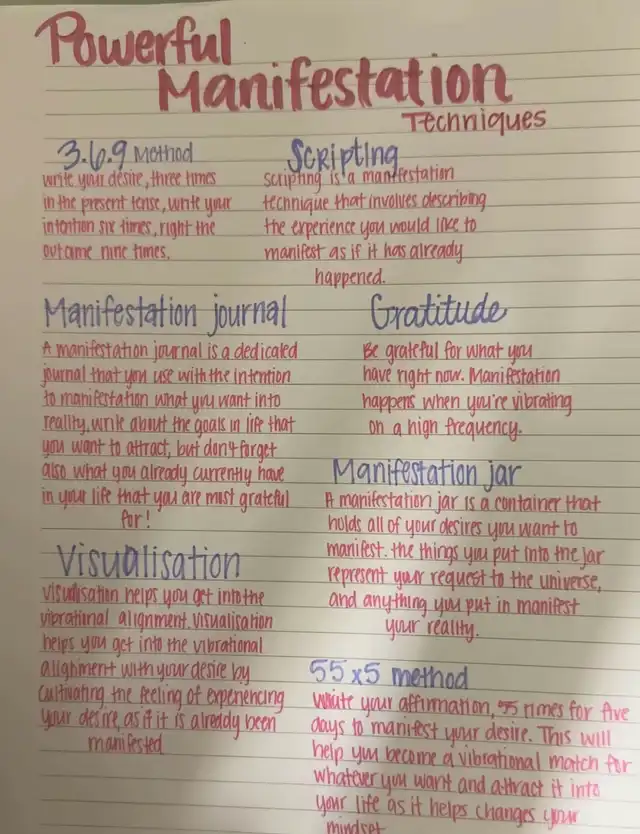 Powerful
Manifestation
Techniques
3.6.9 Method
write your desire, three times
in the present tense, write your
intention six times, right the
outcome nine times.
Scripting
scripting is a manifestation
technique that involves describing
the experience you would like to
manifest as if it has already
happened.
Manifestation journal
A manifestation journal is a dedicated
journal that you use with the intention
to manifestation what you want into
reality, write about the goals in life that
you want to attract, but don't forget
also what you already currently have
in your life that you are most grateful
for!
Gratitude
Be grateful for what you
have right now. Manifestation
happens when you're vibrating
on a high frequency.
Manifestation jar
A manifestation jar is a container that
holds all of your desires you want to
manifest. the things you put into the jar
represent your request to the universe,
and anything you put in manifest
your reality.
Visualisation
visualisation helps you get into the
vibrational alignment. visualisation
helps you get into the vibrational
alignment with your desire by
cultivating the feeling of experiencing
your desire, as if it is already been
manifested
55x5 method
write your affirmation, 55 times for five
days to manifest your desire. This will
help you become a vibrational match for
whatever you want and attract it into
your life as it helps changes your
mindset